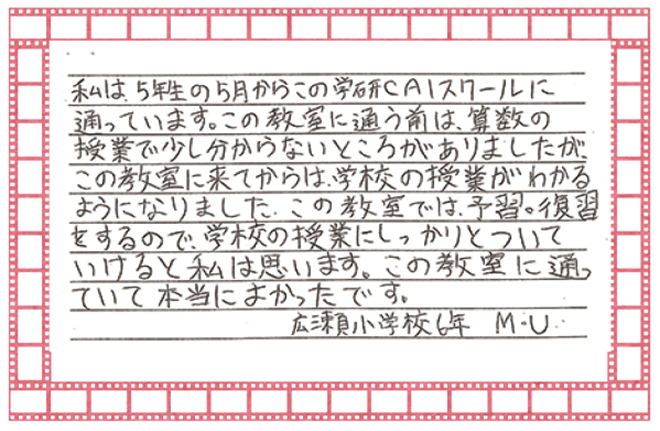 私は、5年生の5月からこの学研CAIスクールに
通っています。この教室に通う前は、算数の
授業で少し分からないところがありましたが、
この教室に来てからは、学校の授業がわかる
ようになりました。この教室では、予習。復習
をするので、学校の授業にしっかりとついて
いけると私は思います。この教室に通っ
ていて本当によかったです。
広瀬小学校6年 M・U